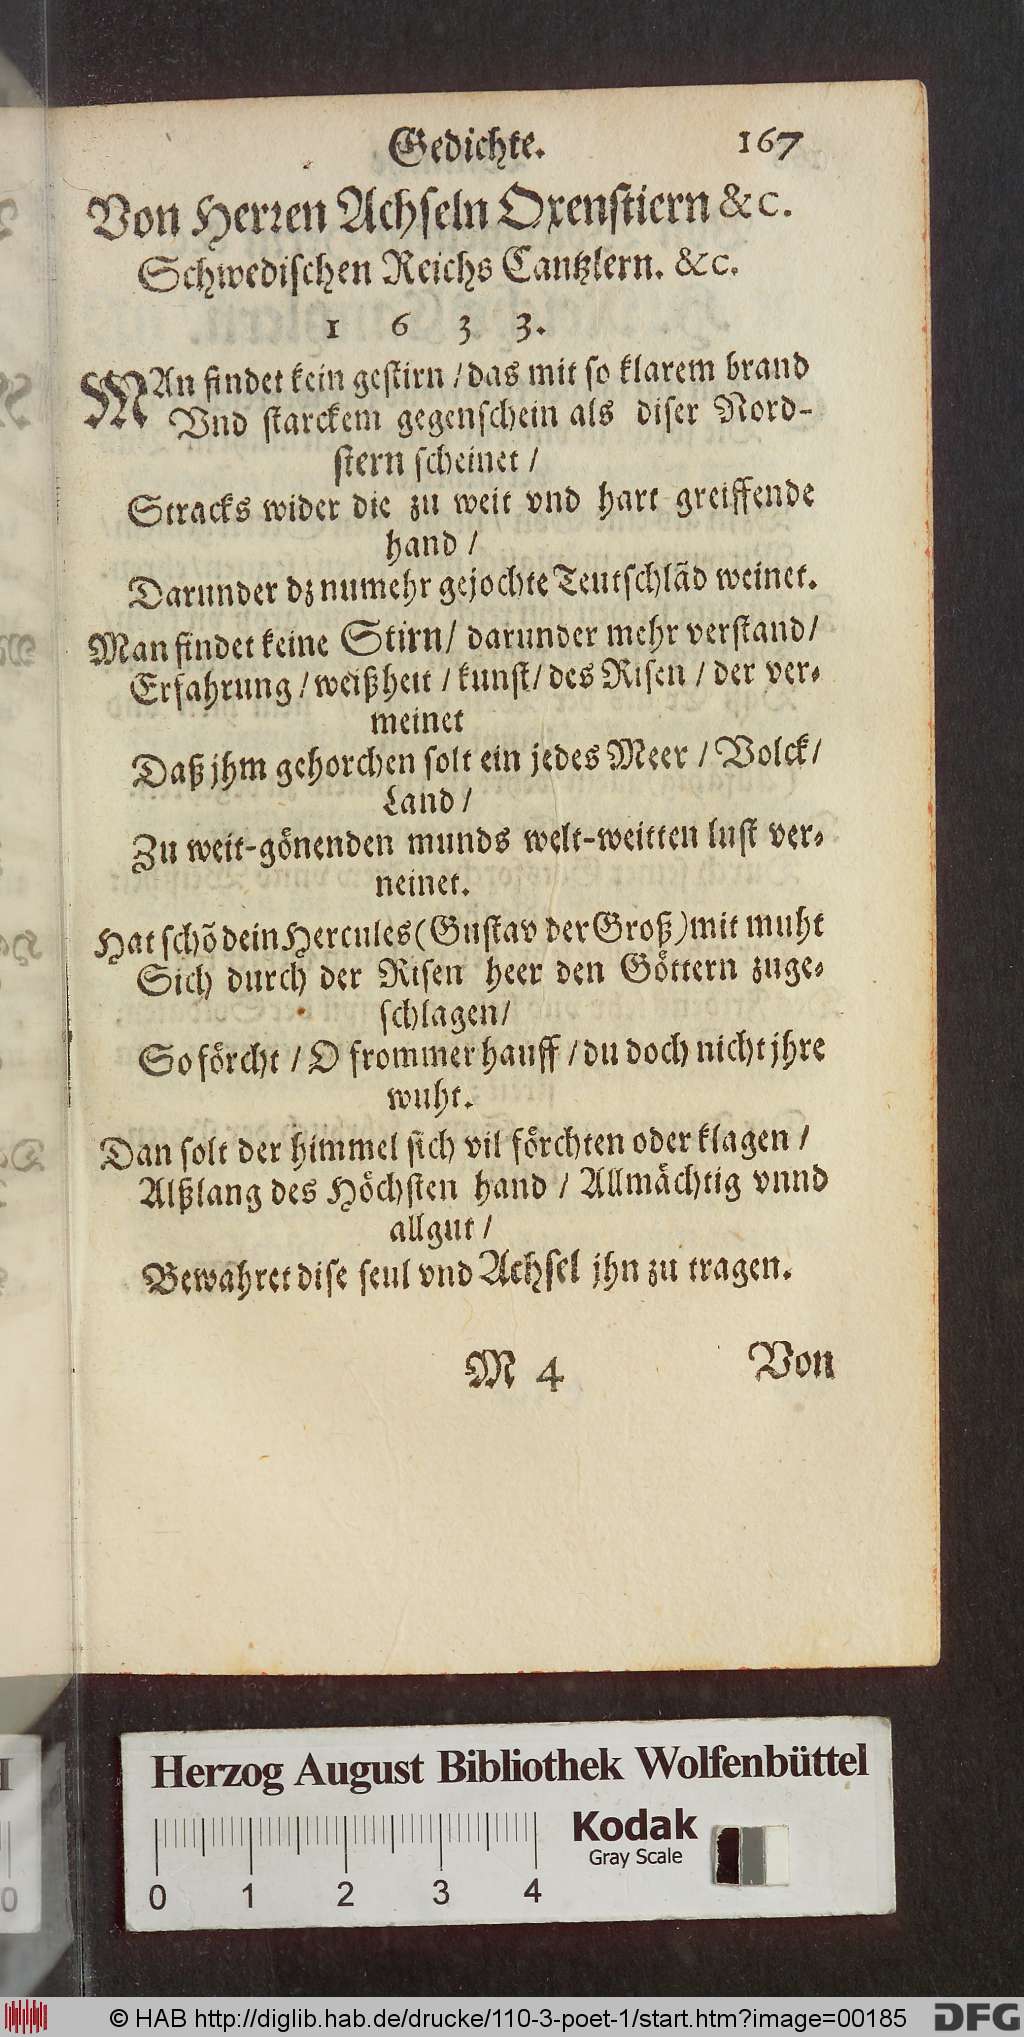 Gedichte. 167
Von Herren Achseln Oxenstiern &c.
Schwedischen Reichs Cantzlern. &c.
1 6 3 3.
MAn findet kein gestirn / das mit so klarem brand
Vnd starckem gegenschein als diser Nord-
stern scheinet /
Stracks wider die zu weit vnd hart greiffende
hand /
Darunder dz numehr gejochte Teutschlãd weinet.
Man findet keine Stirn / darunder mehr verstand /
Erfahrung / weißheit / kunst / des Risen / der ver-
meinet
Daß jhm gehorchen solt ein jedes Meer / Volck /
Land /
Zu weit-gönenden munds welt-weitten lust ver-
neinet.
Hat schõ dein Hercules (Gustav der Groß) mit muht
Sich durch der Risen heer den Göttern zuge-
schlagen /
So förcht / O frommer hauff / du doch nicht jhre
wuht.
Dan solt der himmel sich vil förchten oder klagen /
Alßlang des Höchsten hand / Allmächtig vnnd
allgut /
Bewahret dise seul vnd Achsel jhn zu tragen.
M 4 Von
Herzog August Bibliothek Wolfenbüttel
Kodak
Gray Scale
0 1 2 3 4
© HAB http://diglib.hab.de/drucke/110-3-poet-1/start.htm?image=00185 DFG